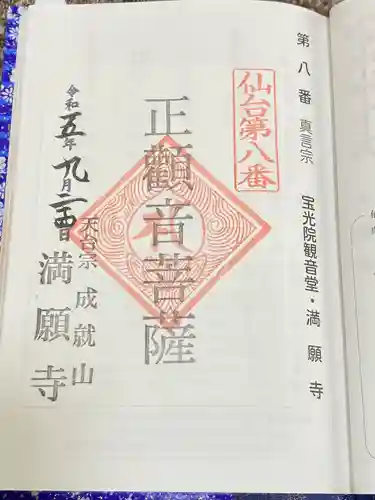 第八番 真言宗 宝光院観音堂・満願寺
仙台第八番
正觀音菩薩
天台宗 成就山
満願寺
令和五年九月二十四日